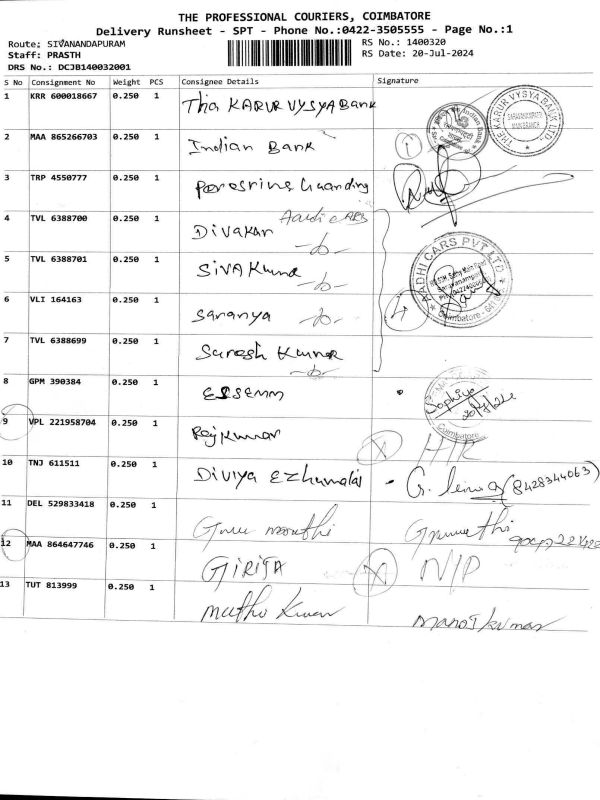 THE PROFESSIONAL COURIERS, COIMBATORE
Delivery Runsheet - SPT - Phone No.:0422-3505555 - Page No.:1
Route: SIVANANDAPURAM
RS No.: 1400320
Staff: PRASTH
RS Date: 20-Jul-2024
DRS No.: DCJB140032001
S No Consignment No Weight PCS Consignee Details Signature
1 KRR 600018667 0.250 1 Tha KARUR VYSYA Bank
THE KARUR VYSYA BANK LTD.
2 MAA 865266703 0.250 1 Indian Bank
Indian Bank
1
3 TRP 4550777 0.250 1
4 TVL 6388700 0.250 1 DIVAKAR Aadi CARS
-do-
5 TVL 6388701 0.250 1 SIVA Kumar
-do-
AADHI CARS PVT LTD
Coimbatore
6 VLI 164163 0.250 1 Saranya -do-
4
7 TVL 6388699 0.250 1 Suresh Kumar
-do-
8 GPM 390384 0.250 1 ESSEMM
Sophiya
20/7/24
Coimbatore
9 VPL 221958704 0.250 1 Rajkumar X
10 TNJ 611511 0.250 1 Diviya Ezhumalai - G. (8428344063)
11 DEL 529833418 0.250 1 Guru moorthi
12 MAA 864647746 0.250 1 GIRIJA X N/P
13 TUT 813999 0.250 1 muthu Kumar manojkumar